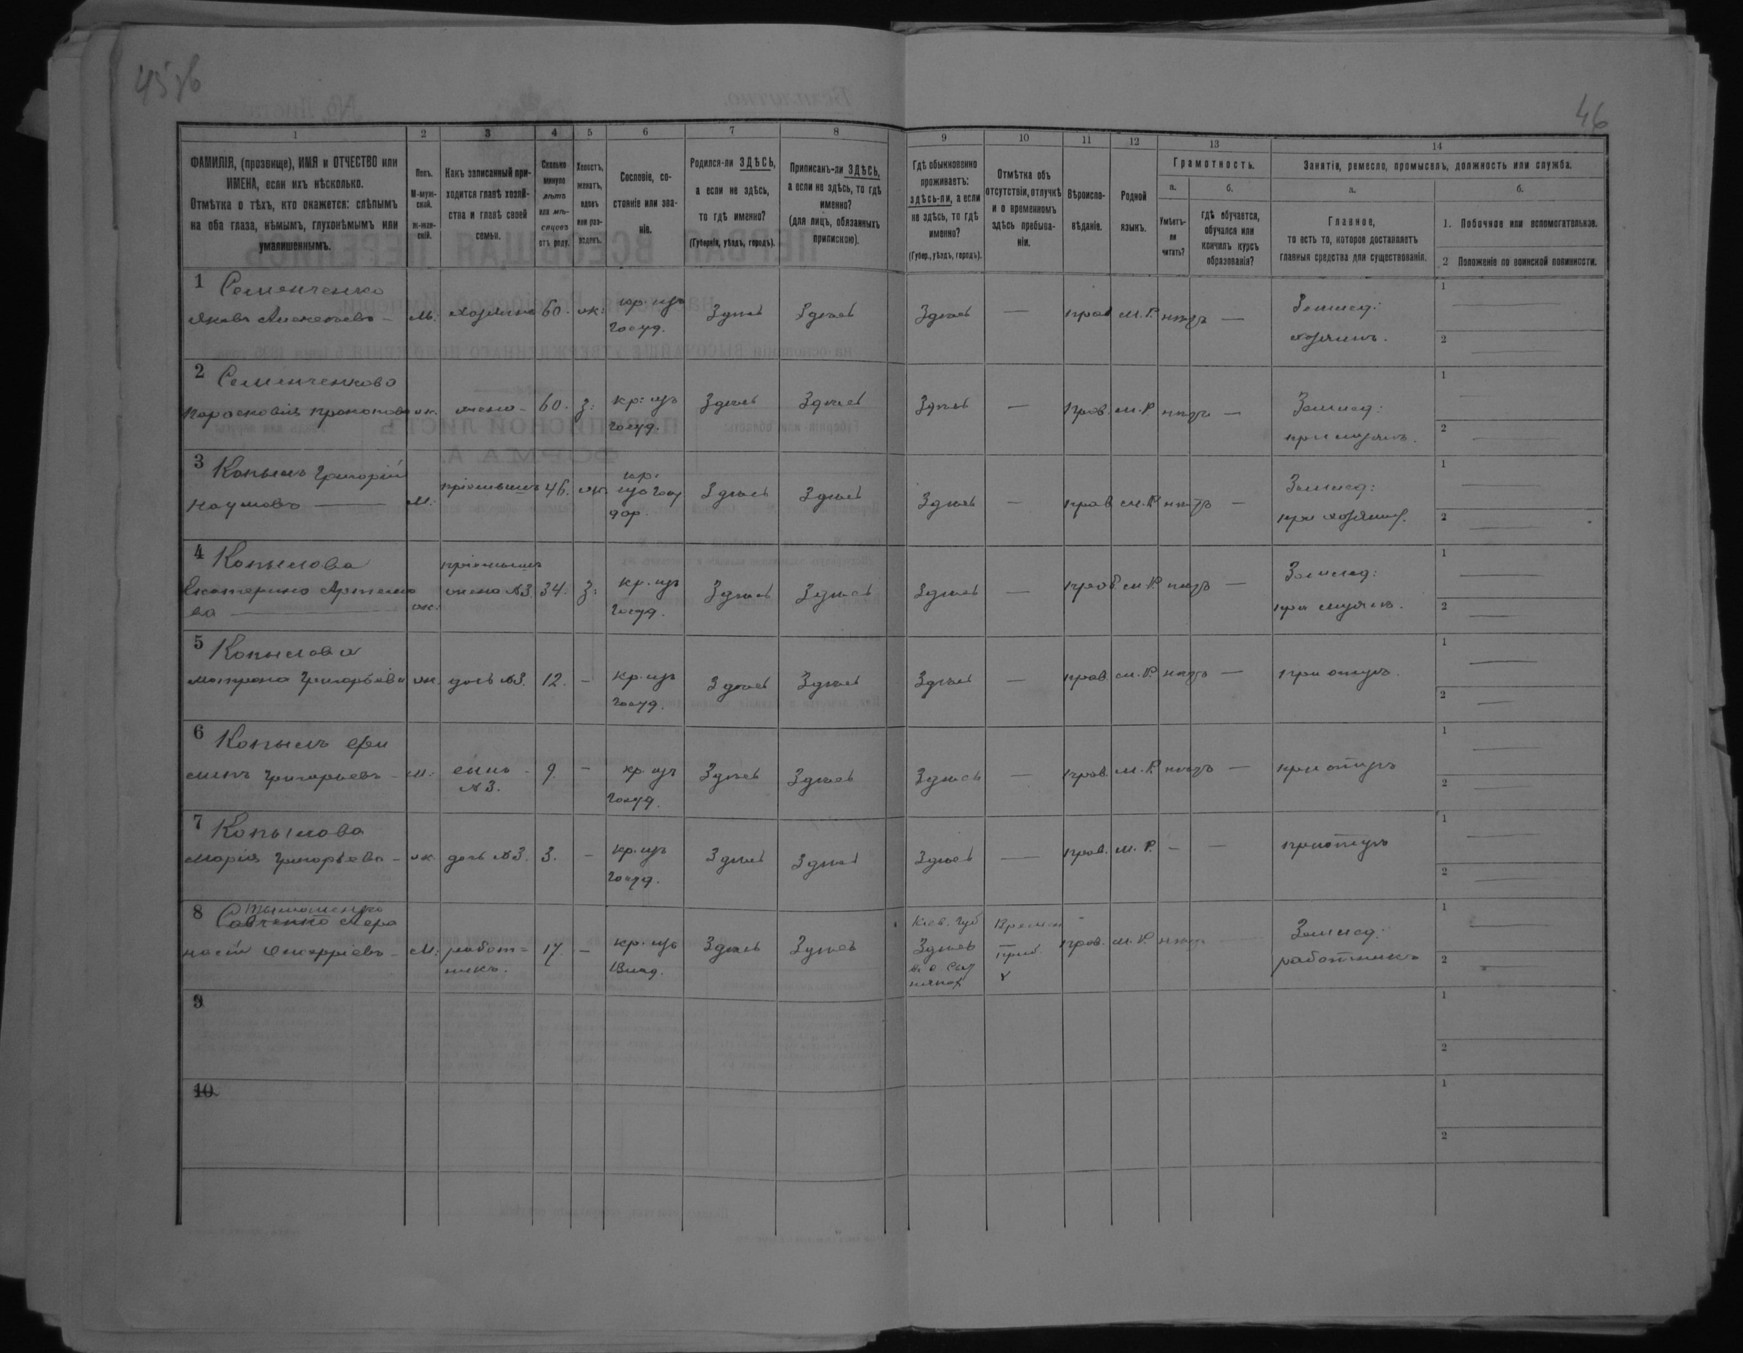 45 об
46
1 2 3 4 5 6 7 8 9 10 11 12 13 14
ФАМИЛІЯ, (прозвище), ИМЯ и ОТЧЕСТВО или ИМЕНА, если ихъ нѣсколько.
Отмѣтка о тѣхъ, кто окажется: слѣпымъ на оба глаза, нѣмымъ, глухонѣмымъ или умалишеннымъ.
Полъ.
М-мужской.
ж-женскій.
Какъ записанный приходится главѣ хозяйства и главѣ своей семьи.
Сколько минуло лѣтъ или мѣсяцевъ отъ роду.
Холостъ, женатъ, вдовъ или разведенъ.
Сословіе, состояніе или званіе.
Родился-ли ЗДѢСЬ, а если не здѣсь, то гдѣ именно?
(Губернія, уѣздъ, городъ).
Приписанъ-ли ЗДѢСЬ, а если не здѣсь, то гдѣ именно?
(для лицъ, обязанныхъ припискою).
Гдѣ обыкновенно проживаетъ: здѣсь-ли, а если не здѣсь, то гдѣ именно?
(Губер., уѣздъ, городъ).
Отмѣтка объ отсутствіи, отлучкѣ и о временномъ здѣсь пребываніи.
Вѣроисповѣданіе.
Родной языкъ.
Грамотность.
а.
Умѣетъ-ли читать?
б.
гдѣ обучается, обучался или кончилъ курсъ образованія?
Занятіе, ремесло, промыселъ, должность или служба.
а.
Главное,
то есть то, которое доставляетъ главныя средства для существованія.
б.
1. Побочное или вспомогательное.
2 Положеніе по воинской повинности.
1 Семенченко
Яковъ Алексѣевъ — м. хозяинъ 60. ж: кр. изъ госуд. Здѣсь Здѣсь Здѣсь — прав м.Р. нѣтъ — Землед: хозяинъ.
1
2
2 Семенченкова
Парасковія Прокопова ж. жена - 60. з: кр: изъ госуд. Здѣсь Здѣсь Здѣсь — прав. м.Р нѣтъ — Землед: при мужѣ.
1
2
3 Копылъ Григорій
Наумовъ — м. пріемышъ 46. ж. кр: изъ государ. Здѣсь Здѣсь Здѣсь — прав м.Р нѣтъ — Землед: при хозяинѣ.
1
2
4 Копылова
Екатерина Артемова — ж. пріемышъ жена №3. 34. з: кр. изъ госуд. Здѣсь Здѣсь Здѣсь — прав м.Р. нѣтъ — Землед: при мужѣ.
1
2
5 Копылова
Матрона Григорьева ж. дочь №3. 12. - кр. изъ госуд. Здѣсь Здѣсь Здѣсь — прав. м.Р. нѣтъ — при отцѣ.
1
2
6 Копылъ
Григорьевъ - м. сынъ №3. 9. - кр. изъ госуд. Здѣсь Здѣсь Здѣсь — прав. м.Р. нѣтъ — при отцѣ
1
2
7 Копылова
Марія Григорьева - ж. дочь №3. 3. - кр. изъ госуд. Здѣсь Здѣсь Здѣсь — прав. м.Р. - — при отцѣ
1
2
8 Савченко
м. работникъ. 17. - кр. изъ Влад. Здѣсь Здѣсь Кіев. губ Здѣсь прав. м.Р. нѣтъ Землед: работникъ
1
2
9
1
2
10
1
2